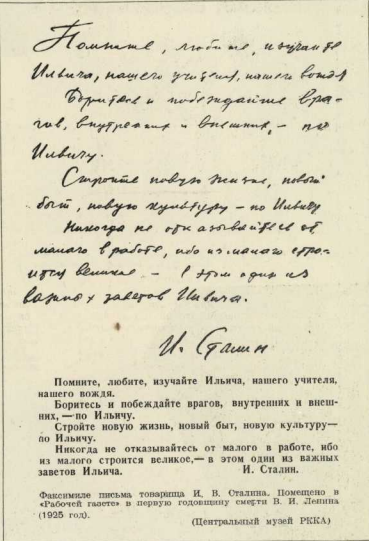 Помните, любите, изучайте
Ильича, нашего учителя, нашего вождя
Боритесь и побеждайте вра-
гов, внутренних и внешних, – по
Ильичу.
Стройте новую жизнь, новый
быт, новую культуру – по Ильичу
Никогда не отказывайтесь от
малого в работе, ибо из малого стро-
ится великое – в этом один из
важных заветов Ильича.
И. Сталин
Помните, любите, изучайте Ильича, нашего учителя,
нашего вождя.
Боритесь и побеждайте врагов, внутренних и внеш-
них, — по Ильичу.
Стройте новую жизнь, новый быт, новую культуру—
по Ильичу.
Никогда не отказывайтесь от малого в работе, ибо
из малого строится великое,— в этом один из важных
заветов Ильича. И. Сталин.
Факсимиле письма товарища И. В. Сталина. Помещено в
«Рабочей газете» в первую годовщину смерти В. И. Ленина
(1925 год).
(Центральный музей РККА)